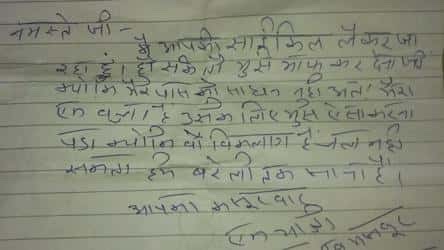 नमस्ते जी -
मैं आपकी साईकिल लेकर जा
रहा हूं। हो सके तो मुझे माफ कर देना जी
क्योंकि मेरे पास कोई साधन नही अतः मेरा
एक बच्चा है उसके लिए मुझे ऐसा करना
पड़ा क्योंकि वो विकलांग है चल नहीं
सकता हमे बरेली तक जाना है।
आपका कसूरवार
एक यात्री
मजदूर